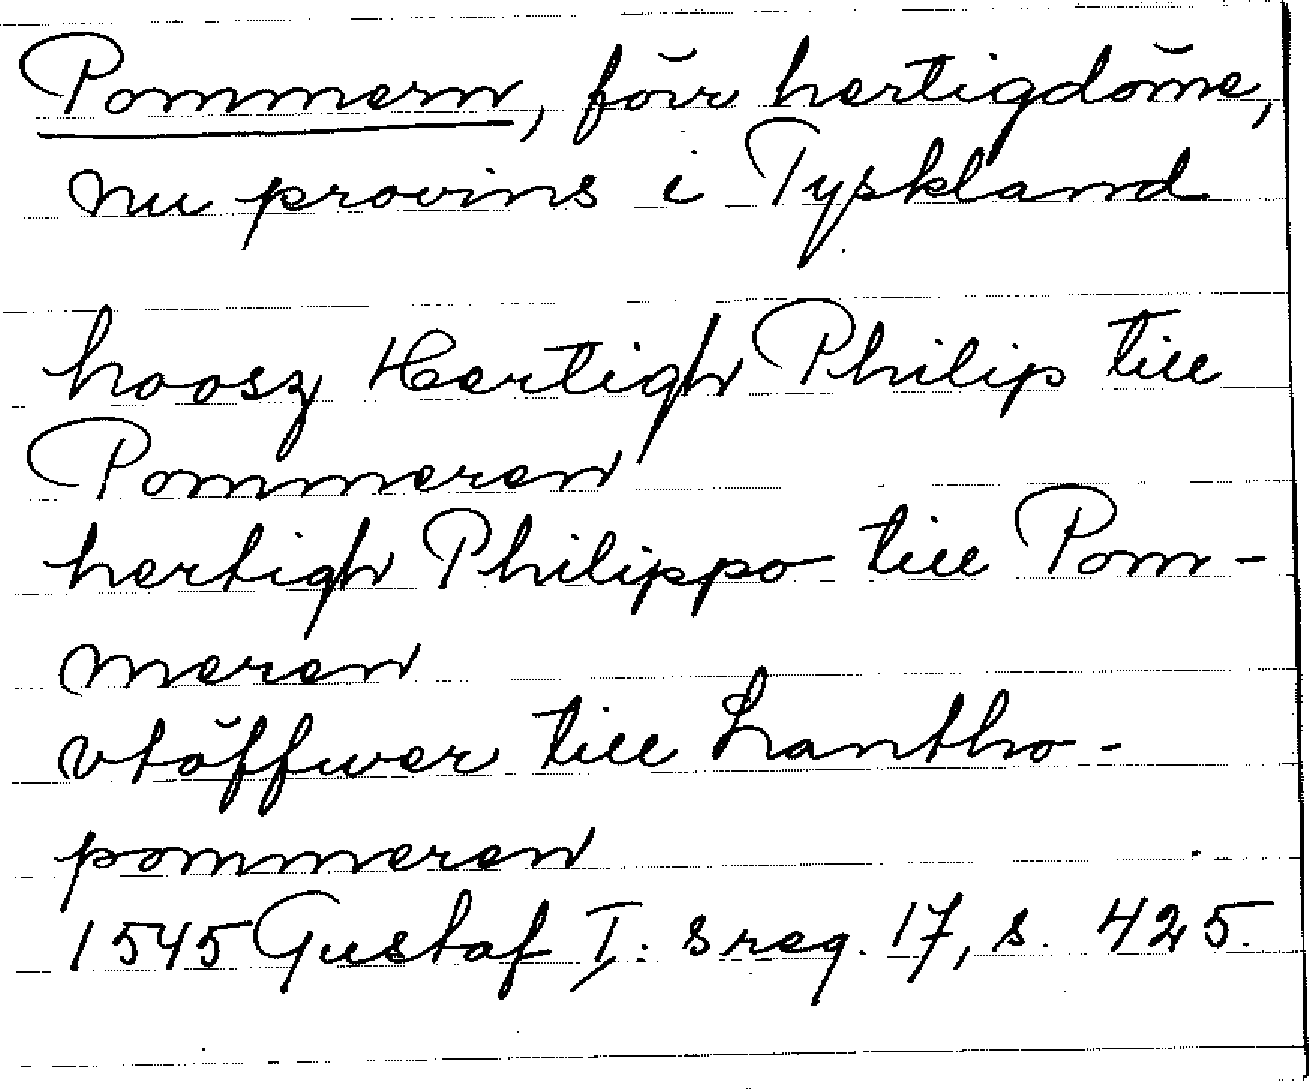 Pommern, förr hertigdöme,
nu provins i Tyskland
hoosz Hertigh Philip till
Pommeren
hertigh Philippo till Pom-
meren
vtöffwer till Lantho-
pommeren
1545 Gustaf I: s reg. 17, s. 425.